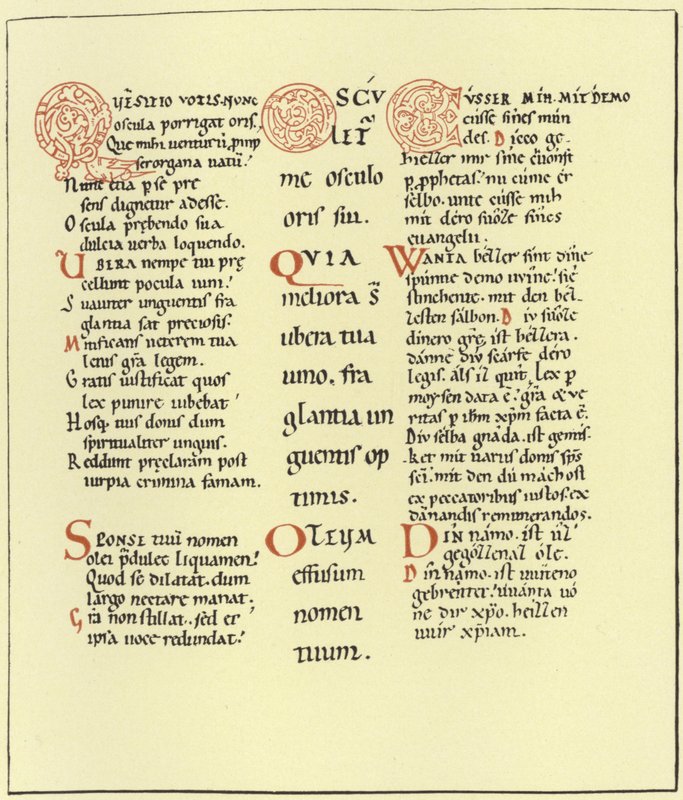 QVĘSITIO VOTIS·NVNC
oscula porrigat oris,
Que mihi venturū ꝓmp
ser organa vatū!
Nunc etiā ꝑ se pre
sens dignetur adesse.
Oscula prębendo sua
dulcia verba loquendo.
UBERA nempe tui pręcellunt pocula uini!
Suauiter unguentis fra
glantia sat preciosis.
Mitificans ueterem tua
lenis gr̄a legem.
Gratis iustificat quos
lex punire iubebat!
Hosq; tuis donis dum
spiritualiter unguis.
Reddunt pręclaram post
turpia crimina famam.
SPONSE tuū nomen
olei p̄dulce liquamen!
Quod se dilatat. dum
largo nectare manat.
Gr̄a non stillat. sed et
ipsa uoce redundat!
OSCVLET᷑
me osculo
oris sui.
QVIA
meliora s̄
ubera tua
uino. fra
glantia un
guentis op
timis.
OLEVM
effusum
nomen
tuum.
CVSSER MIH·MIT DEMO
cusse sines mun
des. Dicco ge-
hiezzer mir sine cuonst
ꝑ ꝓphetas! nu cume er
selbo. unte cusse mih
mit dero suoze sines
euangelii.
WANTA bezzer sint dine
spunne demo uvine! sie
stinchente. mit den bez-
zesten salbon. Div suoze
dinero grę. ist bezzera.
danne div scarfe dero
legis. als iz quit. Lex ꝑ
moysen data ē. gr̄a & ve
ritas ꝑ ihm xp̄m facta ē.
Div selba gnada. ist gemis-
ket mit uariis donis sp̄s
sci. mit den du machost
ex peccatoribus iustos. ex
dānandis remunerandos.
DIN namo. ist ůz
gegozzenaz ole.
Din namo. ist wuiteno
gebreitet! wanta vo
ne dir xp̄o. heizzen
wuir xp̄iani.